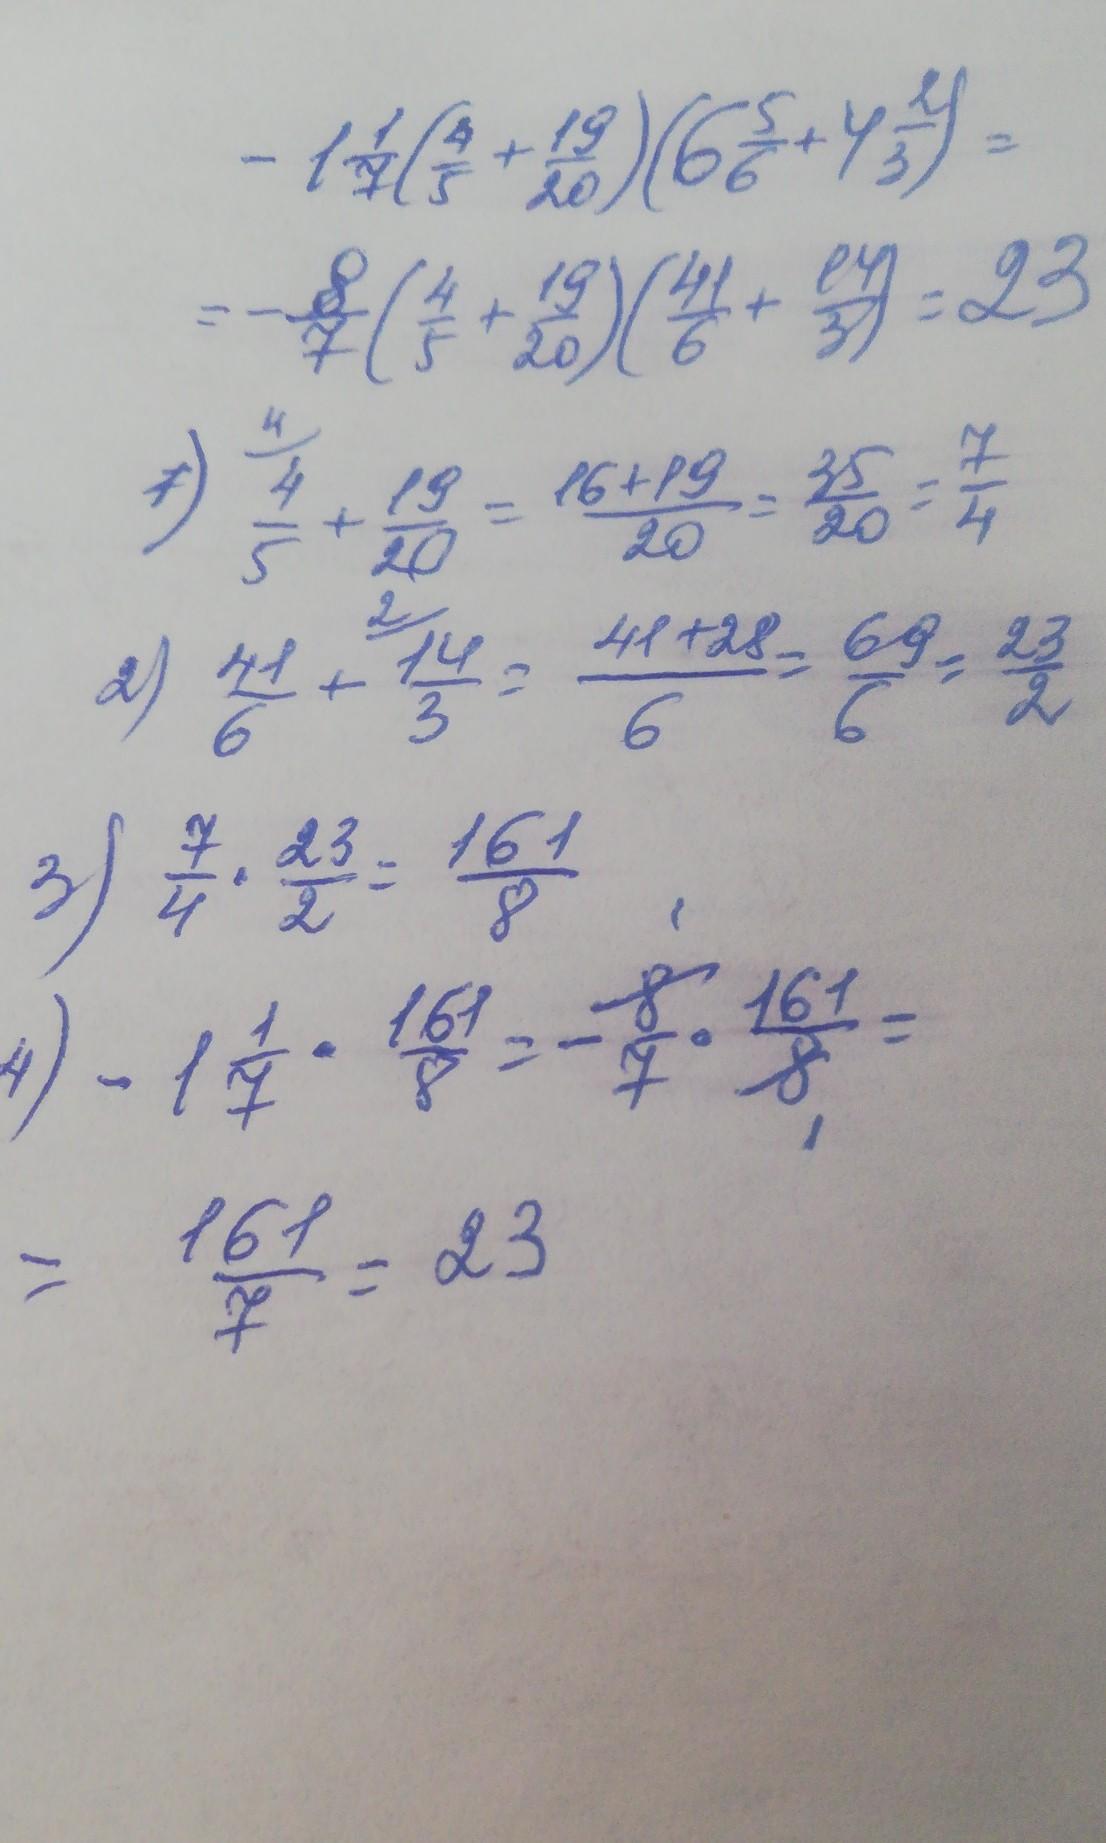 - 1 1/7 (4/5 + 19/20)(6 5/6 + 4 2/3) =
= - 8/7 (4/5 + 19/20)(41/6 + 14/3) = 23
1) 4/ 4/5 + 19/20 = 16+19/20 = 35/20 = 7/4
2) 41/6 + 2/ 14/3 = 41+28/6 = 69/6 = 23/2
3) 7/4 · 23/2 = 161/8
4) - 1 1/7 · 161/8 = - 8/7 · 161/8 =
= 161/7 = 23